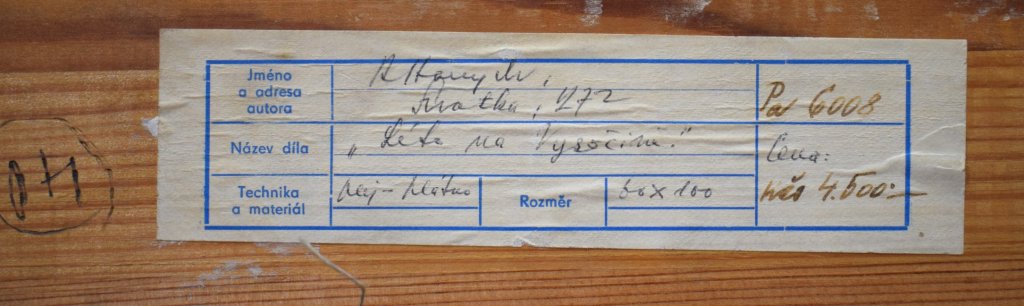 Jméno
a adresa
autora
Krátká, 272
Název díla
„Léto na Vysočině."
Technika
a materiál
olej – plátno
Rozměr
60 x 100
Pa 6008
Cena:
Kčs 4.500.–